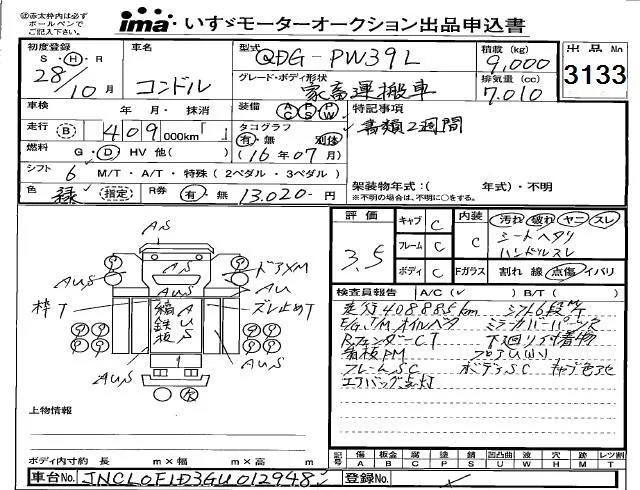 ㊟赤太枠内は必ず
ボールペンで
ご記入下さい。
ima いすゞモーターオークション出品申込書
初度登録
S・H・R
28/10月
車名
コンドル
型式
QDG-PW39L
グレード・ボディ形状
家畜運搬車
積載 (kg)
9,000
排気量 (cc)
7.010
出品No
3133
車検 年・月・抹消
走行 B 409,000km「 」
燃料 G・D・HV 他( )
シフト 6 M/T・A/T・特殊 (2ペダル・3ペダル)
色 緑 (指定) R券 有・無 13.020-円
装備 AC PS PW
タコグラフ
有・無 別体
(16年07月)
特記事項
書類2週間
架装物年式:( 年式)・不明
※不明の場合は、不明に○をする。
評価
3.5
キャブ C
フレーム C
ボディ C
内装 C
汚れ 破れ ヤニ スレ
シートヘタリ
ハンドルスレ
Fガラス 割れ 線 点傷 イバリ
検査員報告 A/C(✓ ) B/T( )
走行408885km シフト6段M/T
E/G,T/M オイルベタ ミラーカバーパーツR
Rフェンダー CT 下回り付着物
看板PM
フレームSC ボデーSC キャブ色アセ
エアバッグ点灯
AS
AS
AUS
AUS
ドアXM
AU
枠T
ズレ止めT
縞鉄板
AUS
AUS
AUS
AUS
上物情報
ボディ内寸約 長 m×幅 m×高 m
記号 傷 A 板金 B 腐 C 塗 P 錆 S 凹凸曲 U 波 W 穴 H 欠 M レツ割 T
車台No. JNCLOF1D3GU012948
登録No.